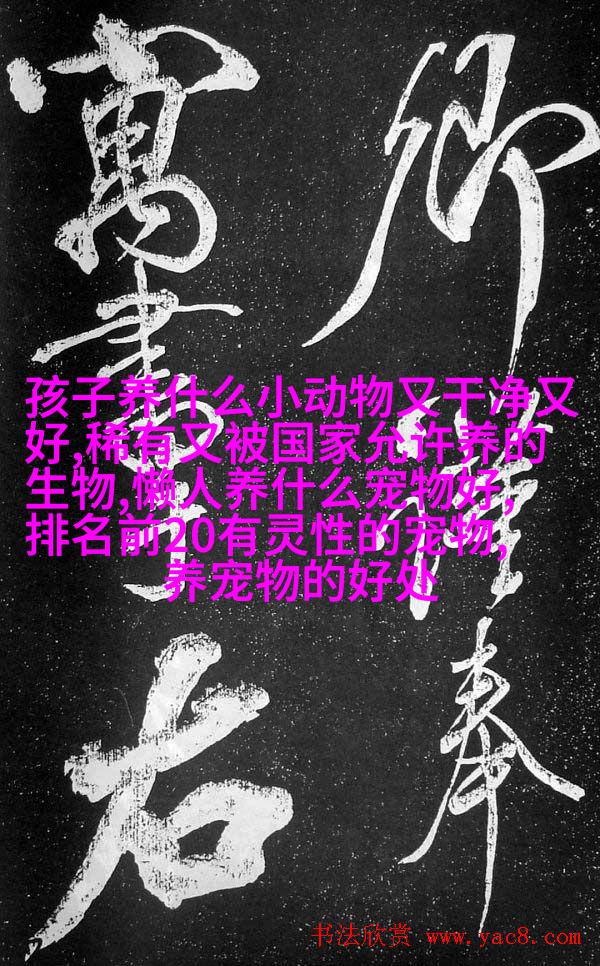 卿 奉
寓書 右
孩子养什么小动物又干净又
好,稀有又被国家允许养的
生物,懒人养什么宠物好,
排名前20有灵性的宠物,
养宠物的好处
书法欣赏 www.yac8.com